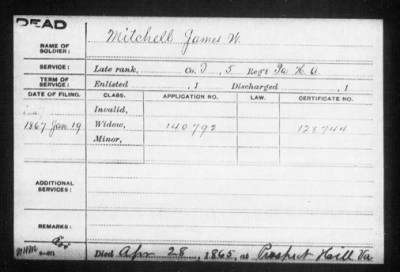 DEAD
NAME OF SOLDIER: Mitchell James W.
SERVICE: Late rank, Co. I, 5 Reg't Pa. H. A.
TERM OF SERVICE: Enlisted , 1 Discharged , 1
DATE OF FILING. CLASS. APPLICATION NO. LAW. CERTIFICATE NO.
Invalid,
1867 Jan 19 Widow, 140792 128744
Minor,
ADDITIONAL SERVICES:
REMARKS:
Died Apr 28, 1865, at Prospect Hill Va